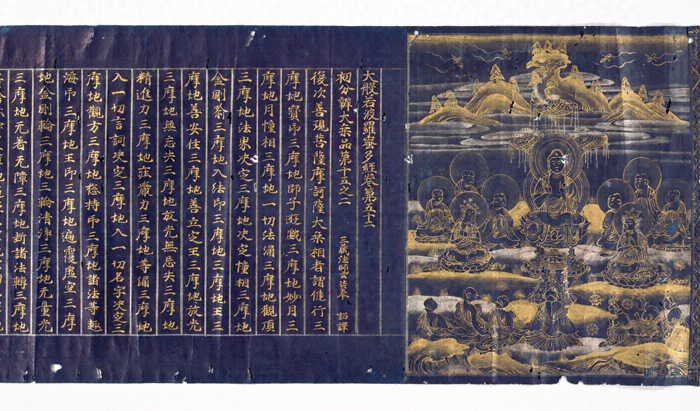 大般若波羅蜜多經卷第五十二
初分辨大乘品第十五之二
三藏法師玄奘奉 詔譯
復次善現菩薩摩訶薩大乘相者謂健行三
摩地寶印三摩地師子遊戲三摩地妙月三
摩地月幢相三摩地一切法涌三摩地觀頂
三摩地法界決定三摩地決定幢相三摩地
金剛喻三摩地入法印三摩地三摩地王三
摩地善安住三摩地善立定王三摩地放光
三摩地無忘失三摩地放光無忘失三摩地
精進力三摩地莊嚴力三摩地等涌三摩地
入一切言詞決定三摩地入一切名字決定三
摩地觀方三摩地總持印三摩地諸法等趣
海印三摩地王印三摩地遍覆虛空三摩
地金剛輪三摩地三輪清淨三摩地无量光
三摩地无著无障三摩地斷諸法轉三摩地